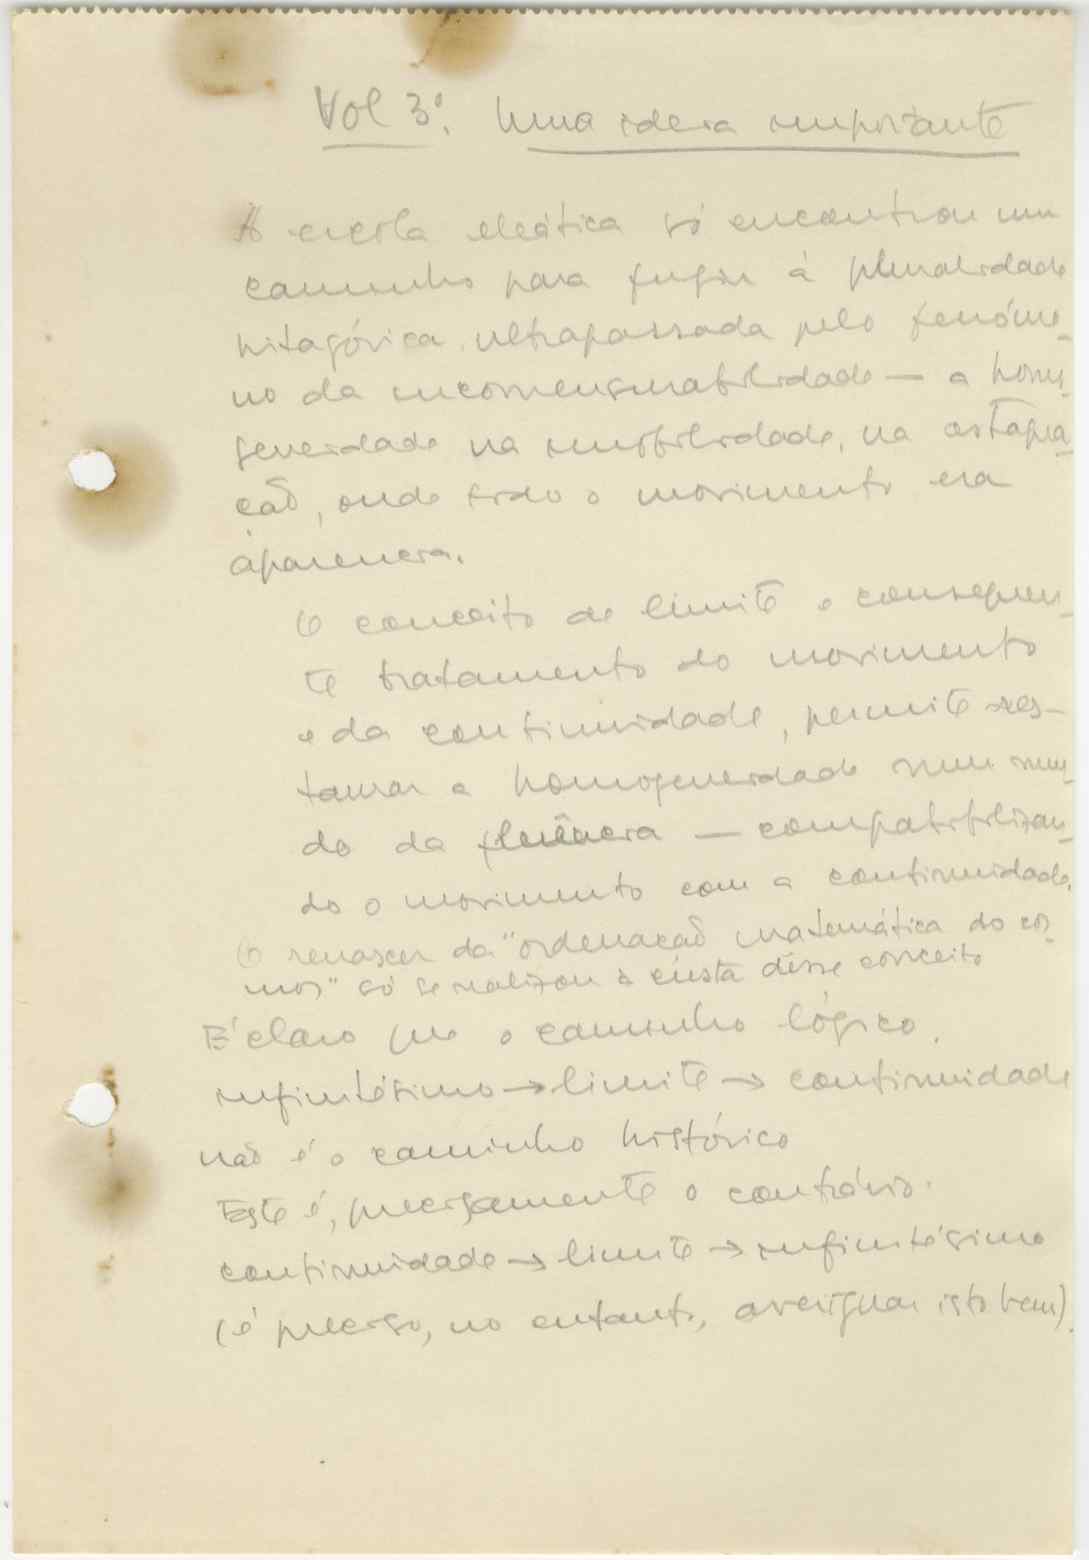 Vol 3º. Uma ideia importante
A escola eleática só encontrou um
caminho para fugir à pluralidade
pitagórica ultrapassada pelo fenóme-
no da incomensurabilidade — a homo-
geneidade na imobilidade, na
ção, onde todo o movimento era
aparência.
O conceito de limite e consequen-
te tratamento do movimento
e da continuidade, permite res-
taurar a homogeneidade num mun-
do da fluência — compatibilizan-
do o movimento com a continuidade.
O renascer da "ordenação matemática do cos-
mos" só se realizou à custa dêsse conceito
É claro que o caminho lógico.
infinitésimo → limite → continuidade
não é o caminho histórico
Este é, precisamente o contrário.
continuidade → limite → infinitésimo
(é preciso, no entanto, averiguar isto bem).